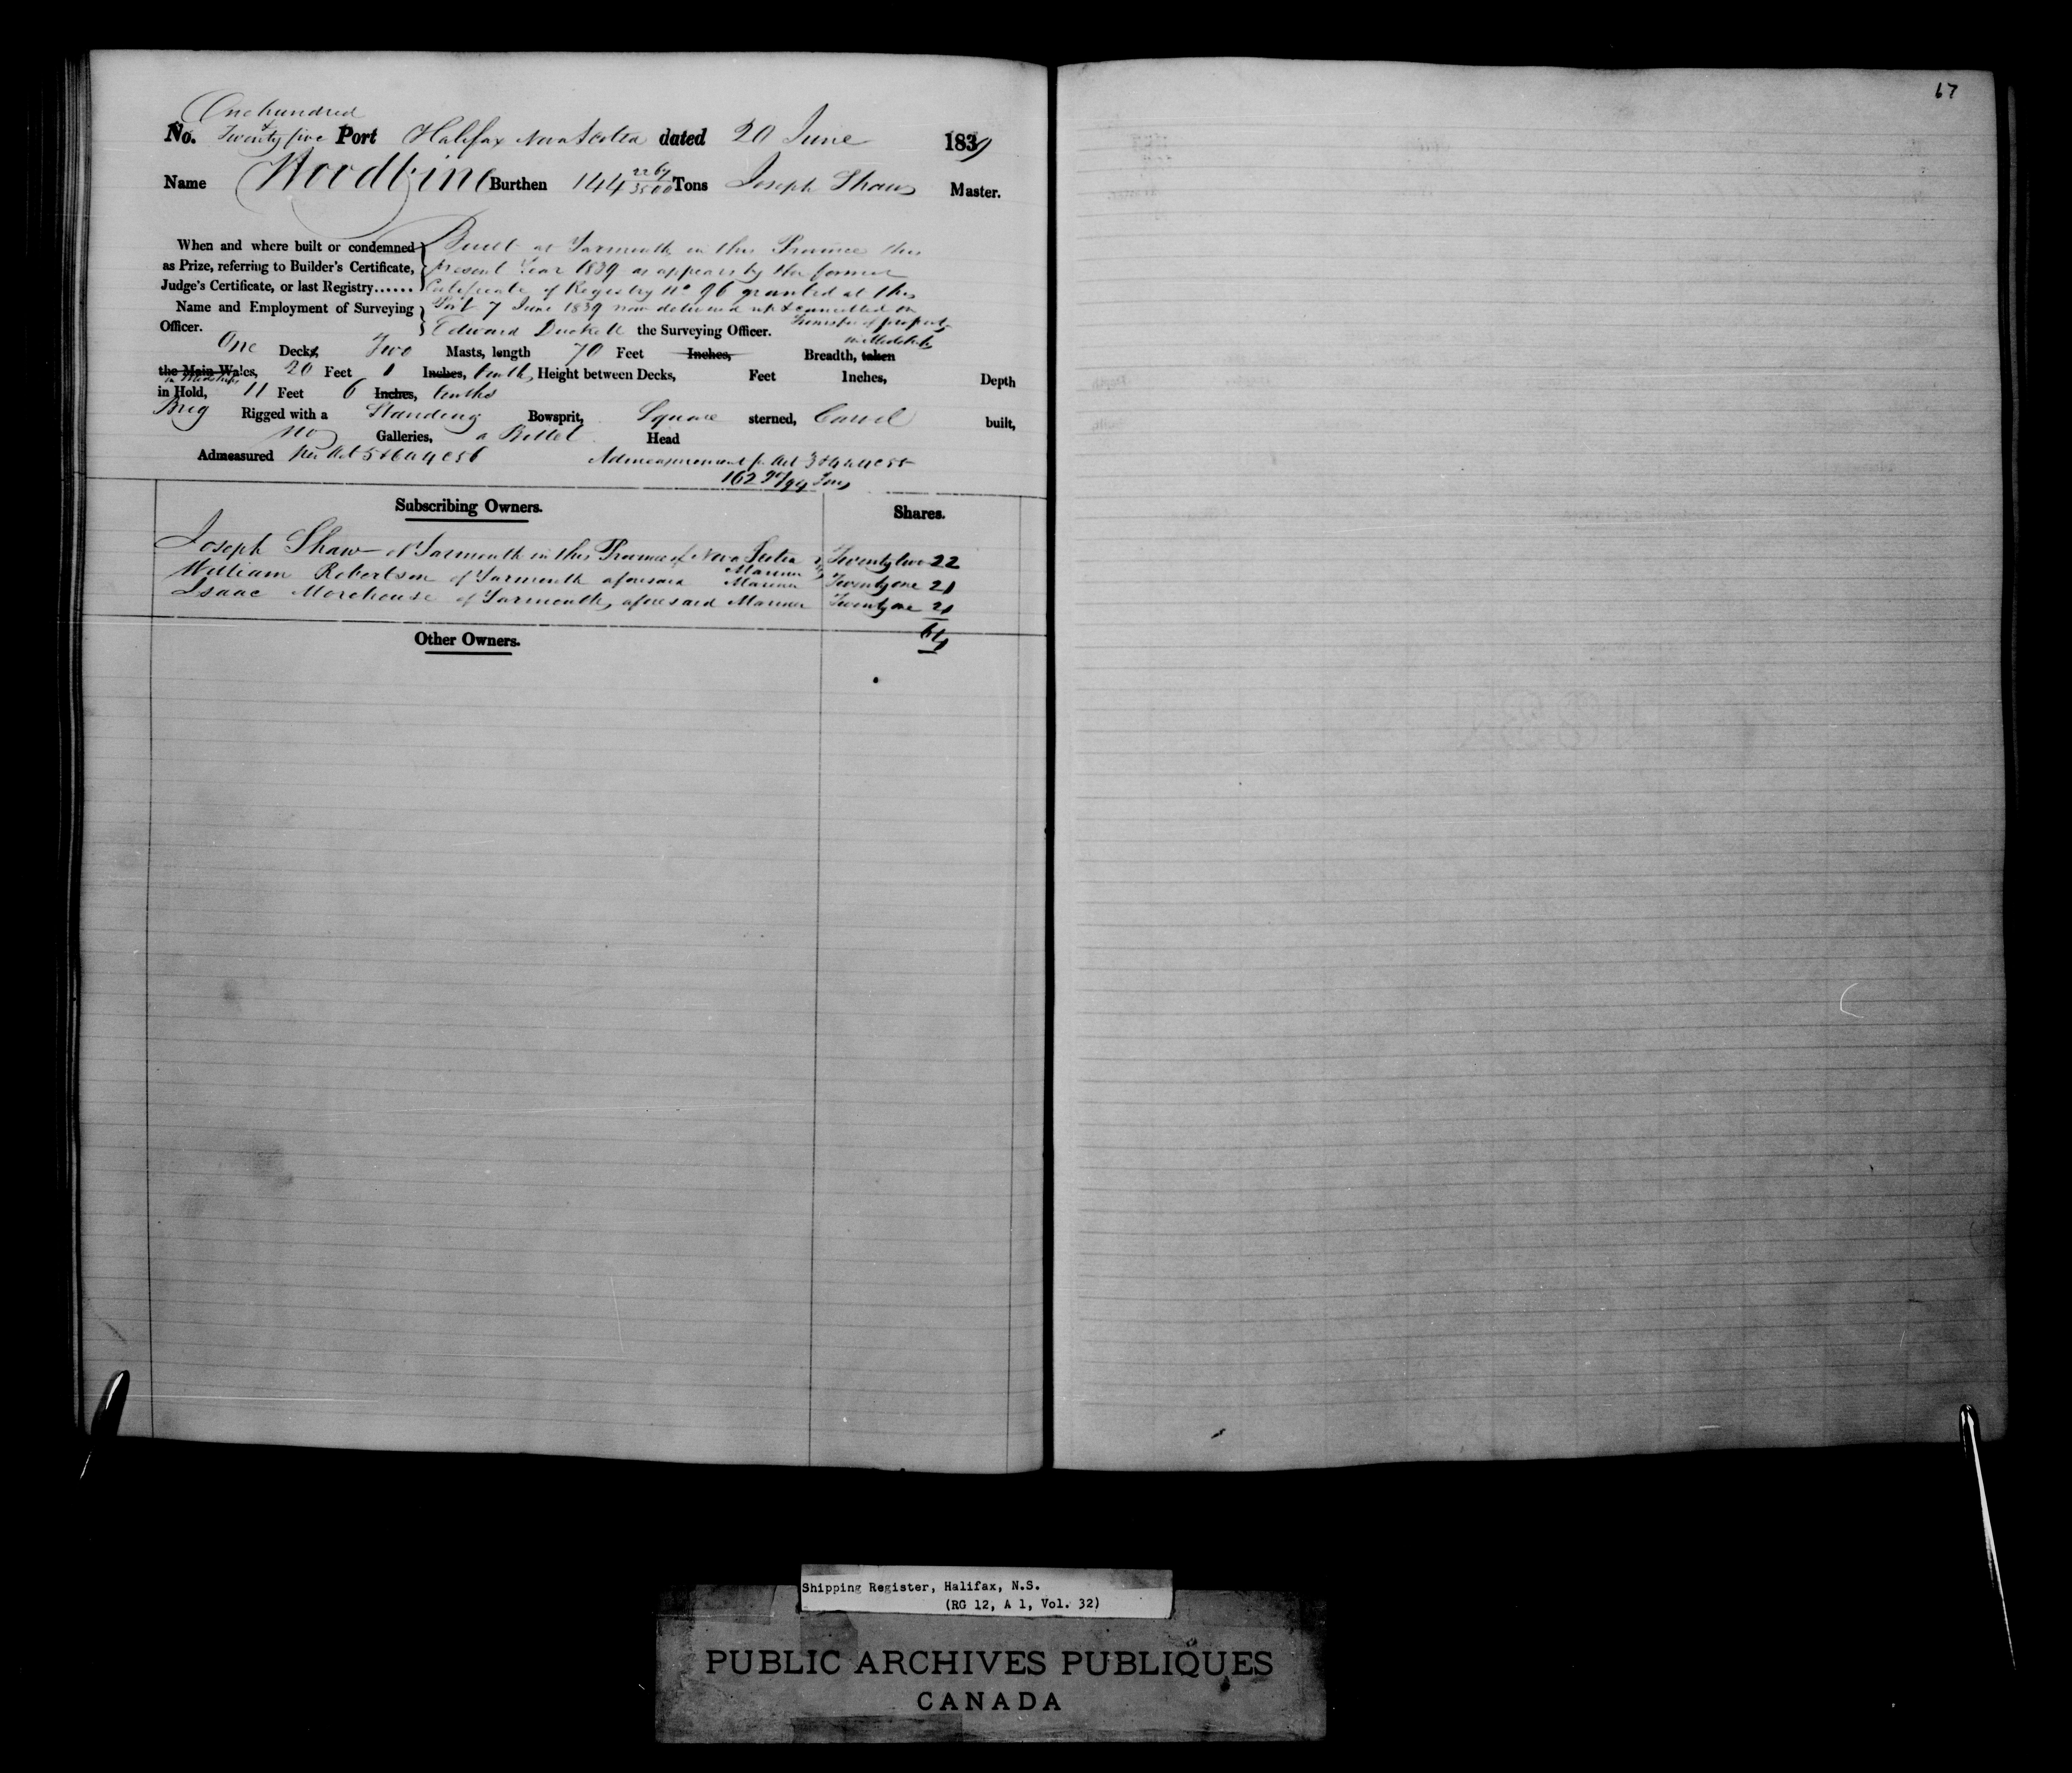 One hundred
No. & Twenty five Port Halifax Nova Scotia dated 20 June 1839
Name Woodbine Burthen 144 2264/3500 Tons Joseph Shaw Master.
When and where built or condemned Built at Yarmouth in this Province this
as Prize, referring to Builder's Certificate, present Year 1839 as appears by the former
Judge's Certificate, or last Registry...... Certificate of Registry No 96 granted at this
Name and Employment of Surveying Port 7 June 1839 now delivered up & cancelled on
Officer. Edward Duckett the Surveying Officer. Transfer of property
in Midships
One Decks, Two Masts, length 70 Feet Inches, Breadth, taken
the Main Wales, 20 Feet 1 Inches, tenth, Height between Decks, Feet Inches, Depth
in Midships
in Hold, 11 Feet 6 Inches, tenths
Brig Rigged with a Standing Bowsprit, Square sterned, Carvel built,
no Galleries, a Billet Head
Admeasured per Act 5 & 6 W 4 C 56 Admeasurement pr Act 3 & 4 W 4 C 55
162 /94 Tons
Subscribing Owners. Shares.
Joseph Shaw of Yarmouth in this Province of Nova Scotia Twenty two 22
Mariner
William Robertson of Yarmouth aforesaid Mariner Twenty one 21
Isaac Morehouse of Yarmouth, aforesaid Mariner Twenty one 21
64
Other Owners.
67
Shipping Register, Halifax, N.S.
(RG 12, A 1, Vol. 32)
PUBLIC ARCHIVES PUBLIQUES
CANADA